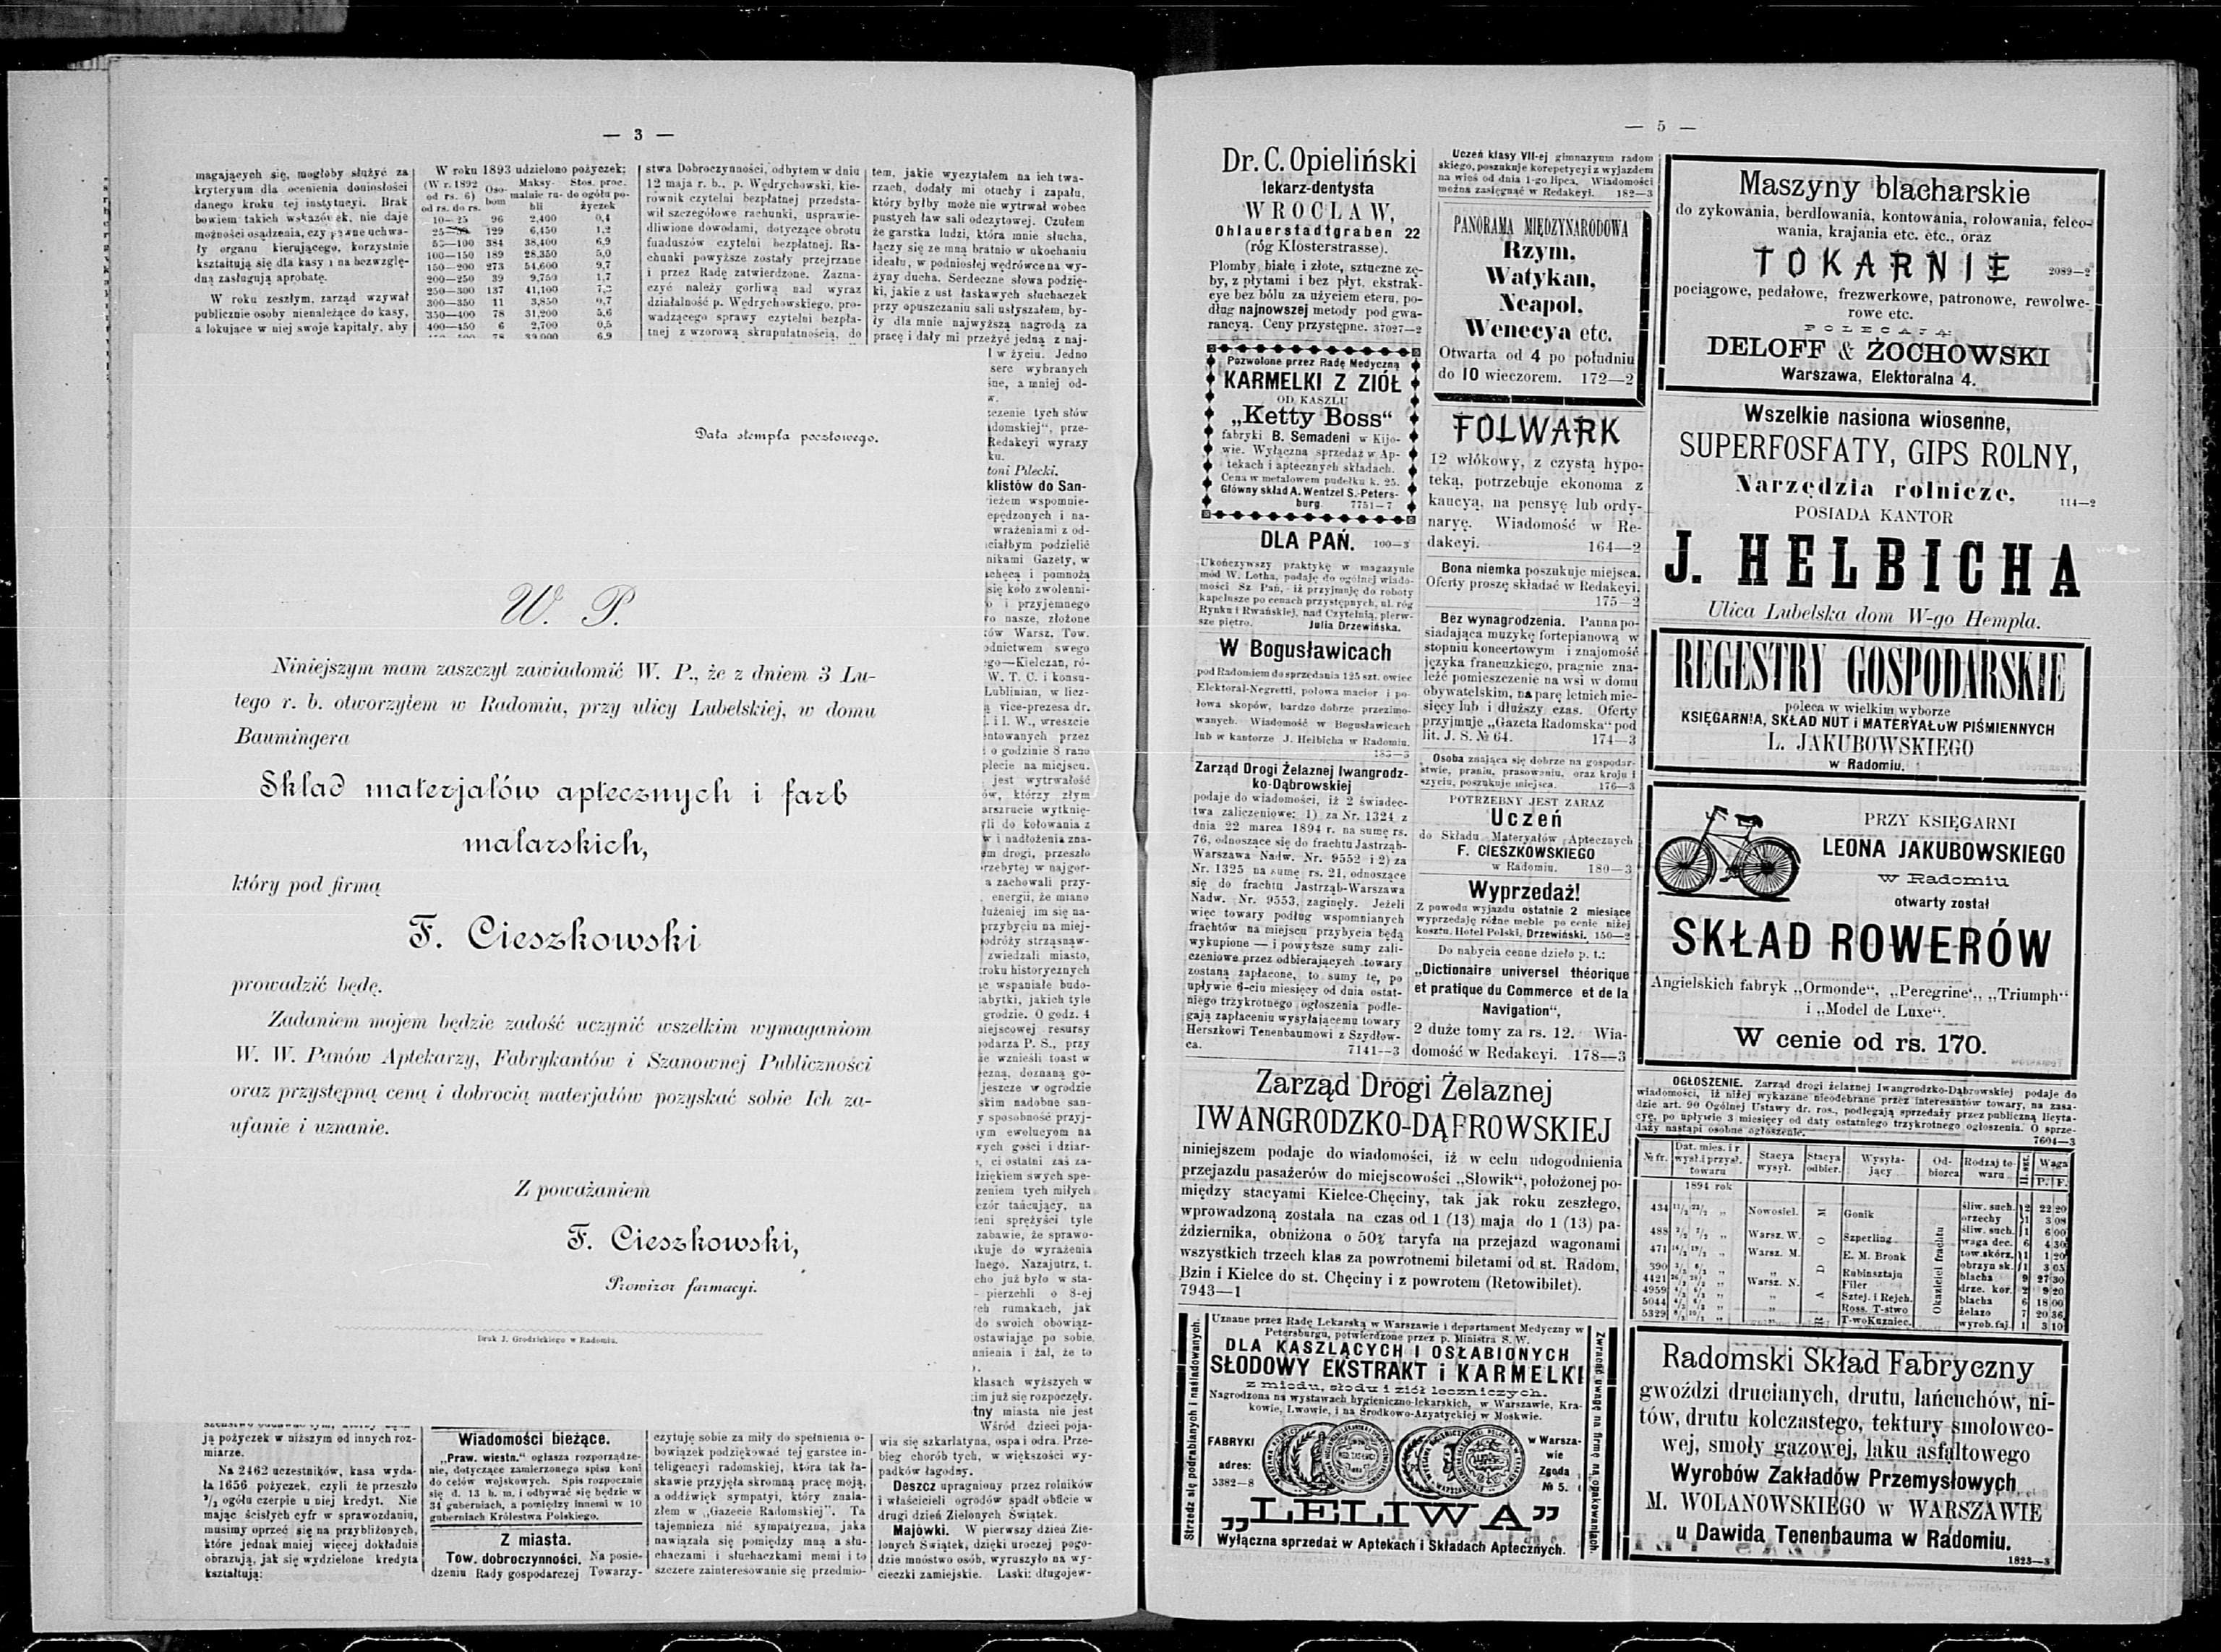 — 3 —
magających się, mogłoby służyć za
kryteryum dla ocenienia doniosłości
danego kroku tej instytucyi. Brak
bowiem takich wskazówek, nie daje
możności osądzenia, czy pewne uchwa-
ły organu kierującego, korzystnie
kształtują się dla kasy i na bezwzglę-
dną zasługują aprobatę.
W roku zeszłym, zarząd wzywał
publicznie osoby nienależące do kasy,
a lokujące w niej swoje kapitały, aby
W roku 1893 udzielono pożyczek:
(W r. 1892 Oso- Maksy- Stos. proc.
od rs. 6) bom malnie ru- do ogółu po-
od rs. do rs. bli życzek
10—25 96 2,400 0,4
129 6,450 1,2
384 38,400 6,9
100—150 189 28,350 5,0
150—200 273 54,600 9,7
200—250 39 9,750 1,7
250—300 137 41,100
300—350 11 3,850 0,7
350—400 78 31,200 5,6
400—450 6 2,700 0,5
stwa Dobroczynności, odbytem w dniu
12 maja r. b., p. Wędrychowski, kie-
rownik czytelni bezpłatnej przedsta-
wił szczegółowe rachunki, usprawie-
dliwione dowodami, dotyczące obrotu
funduszów czytelni bezpłatnej. Ra-
chunki powyższe zostały przejrzane
i przez Radę zatwierdzone. Zazna-
czyć należy gorliwą nad wyraz
działalność p. Wędrychowskiego, pro-
wadzącego sprawy czytelni bezpła-
tnej z wzorową skrupulatnością, do
tem, jakie wyczytałem na ich twa-
rzach, dodały mi otuchy i zapału,
który byłby może nie wytrwał wobec
pustych ław sali odczytowej. Czułem
że garstka ludzi, która mnie słucha,
łączy się ze mną bratnio w ukochaniu
ideału, w podniosłej wędrówce na wy-
żyny ducha. Serdeczne słowa podzię-
ki, jakie z ust łaskawych słuchaczek
przy opuszczaniu sali usłyszałem, by-
ły dla mnie najwyższą nagrodą za
pracę i dały mi przeżyć jedną z naj-
w życiu. Jedno
serc wybranych
a mniej od-
tych słów
prze-
Redakcyi wyrazy
Pilecki.
klistów do San-
wspomnie-
i na-
wrażeniami z od-
podzielić
Gazety, w
i pomnożą
się koło zwolenni-
i przyjemnego
nasze, złożone
Warsz. Tow.
swego
Kielczan, ró-
W. T. C. i konsu-
Lublinian, w licz-
vice-prezesa dr.
I. W., wreszcie
przez
o godzinie 8 rano
na miejscu.
jest wytrwałość
którzy złym
wytknię-
do kołowania z
i nadłożenia zna-
drogi, przeszło
w najgor-
a zachowali przy-
energii, że miano
im się na-
przybyciu na miej-
zwiedzali miasto,
historycznych
wspaniałe budo-
jakich tyle
grodzie. O godz. 4
resursy
P. S., przy
wznieśli toast w
doznaną go-
jeszcze w ogrodzie
nadobne san-
sposobność przyj-
ewolucyom na
gości i dziar-
ci ostatni zaś za-
swych spe-
tych miłych
tańcujący, na
sprężyści tyle
zabawie, że sprawo-
do wyrażenia
Nazajutrz, t.
już było w sta-
pierzchli o 8-ej
rumakach, jak
do swoich obowiąz-
po sobie
i żal, że to
klasach wyższych w
już się rozpoczęły.
miasta nie jest
Wśród dzieci poja-
Data stempla pocztowego.
W. P.
Niniejszym mam zaszczyt zawiadomić W. P., że z dniem 3 Lu-
tego r. b. otworzyłem w Radomiu, przy ulicy Lubelskiej, w domu
Baumingera
Skład materjałów aptecznych i farb
malarskich,
który pod firmą
F. Cieszkowski
prowadzić będę.
Zadaniem mojem będzie zadość uczynić wszelkim wymaganiom
W. W. Panów Aptekarzy, Fabrykantów i Szanownej Publiczności
oraz przystępną ceną i dobrocią materjałów pozyskać sobie Ich za-
ufanie i uznanie.
Z poważaniem
F. Cieszkowski,
Prowizor farmacyi.
Druk J. Grodzickiego w Radomiu.
ją pożyczek w niższym od innych roz-
miarze.
Na 2462 uczestników, kasa wyda-
ła 1656 pożyczek, czyli że przeszło
²/₃ ogółu czerpie u niej kredyt. Nie
mając ścisłych cyfr w sprawozdaniu,
musimy oprzeć się na przybliżonych,
które jednak mniej więcej dokładnie
obrazują, jak się wydzielone kredyta
kształtują:
Wiadomości bieżące.
„Praw. wiestn.“ ogłasza rozporządze-
nie, dotyczące zamierzonego spisu koni
do celów wojskowych. Spis rozpocznie
się d. 13 b. m. i odbywać się będzie w
34 guberniach, a pomiędzy innemi w 10
guberniach Królestwa Polskiego.
Z miasta.
Tow. dobroczynności. Na posie-
dzeniu Rady gospodarczej Towarzy-
czytuję sobie za miły do spełnienia o-
bowiązek podziękować tej garstce in-
teligencyi radomskiej, która tak ła-
skawie przyjęła skromną pracę moją,
a oddźwięk sympatyi, który znala-
złem w „Gazecie Radomskiej“. Ta
tajemnicza nić sympatyczna, jaka
nawiązała się pomiędzy mną a słu-
chaczami i słuchaczkami memi i to
szczere zainteresowanie się przedmio-
wia się szkarlatyna, ospa i odra. Prze-
bieg chorób tych, w większości wy-
padków łagodny.
Deszcz upragniony przez rolników
i właścicieli ogrodów spadł obficie w
drugi dzień Zielonych Świątek.
Majówki. W pierwszy dzień Zie-
lonych Świątek, dzięki uroczej pogo-
dzie mnóstwo osób, wyruszyło na wy-
cieczki zamiejskie. Laski: długojew-
— 5 —
Dr. C. Opieliński
lekarz-dentysta
WROCLAW,
Ohlauerstadtgraben 22
(róg Klosterstrasse).
Plomby białe i złote, sztuczne zę-
by, z płytami i bez płyt, ekstrak-
cye bez bólu za użyciem eteru, po-
dług najnowszej metody pod gwa-
rancyą. Ceny przystępne. 37027—2
Pozwolone przez Radę Medyczną
KARMELKI Z ZIÓŁ
OD KASZLU
„Ketty Boss“
fabryki B. Semadeni w Kijo-
wie. Wyłączna sprzedaż w Ap-
tekach i aptecznych składach.
Cena w metalowem pudełku k. 25.
Główny skład A. Wentzel S.-Peters-
burg. 7751—7
DLA PAŃ. 100—3
Ukończywszy praktykę w magazynie
mód W. Lotha, podaję do ogólnej wiado-
mości Sz. Pań, iż przyjmuję do roboty
kapelusze po cenach przystępnych, ul. róg
Rynku i Rwańskiej, nad Czytelnią, pierw-
sze piętro. Julia Drzewińska.
W Bogusławicach
pod Radomiem do sprzedania 125 szt. owiec
Elektoral-Negretti, połowa macior i po-
łowa skopów, bardzo dobrze przezimo-
wanych. Wiadomość w Bogusławicach
lub w kantorze J. Helbicha w Radomiu.
183—3
Zarząd Drogi Żelaznej Iwangrodz-
ko-Dąbrowskiej
podaje do wiadomości, iż 2 świadec-
twa zaliczeniowe: 1) za Nr. 1324 z
dnia 22 marca 1894 r. na sumę rs.
76, odnoszące się do frachtu Jastrząb-
Warszawa Nadw. Nr. 9552 i 2) za
Nr. 1325 na sumę rs. 21, odnoszące
się do frachtu Jastrząb-Warszawa
Nadw. Nr. 9553, zaginęły. Jeżeli
więc towary podług wspomnianych
frachtów na miejscu przybycia będą
wykupione — i powyższe sumy zali-
czeniowe przez odbierających towary
zostaną zapłacone, to sumy te, po
upływie 6-ciu miesięcy od dnia ostat-
niego trzykrotnego ogłoszenia podle-
gają zapłaceniu wysyłającemu towary
Herszkowi Tenenbaumowi z Szydłow-
ca. 7141—3
Uczeń klasy VII-ej gimnazyum radom
skiego, poszukuje korepetycyi z wyjazdem
na wieś od dnia 1-go lipca. Wiadomości
można zasięgnąć w Redakcyi. 182—3
PANORAMA MIĘDZYNARODOWA
Rzym,
Watykan,
Neapol,
Wenecya etc.
Otwarta od 4 po południu
do 10 wieczorem. 172—2
FOLWARK
12 włókowy, z czystą hypo-
teką, potrzebuje ekonoma z
kaucyą, na pensyę lub ordy-
naryę. Wiadomość w Re-
dakcyi. 164—2
Bona niemka poszukuje miejsca.
Oferty proszę składać w Redakcyi.
175—2
Bez wynagrodzenia. Panna po-
siadająca muzykę fortepianową w
stopniu koncertowym i znajomość
języka francuzkiego, pragnie zna-
leźć pomieszczenie na wsi w domu
obywatelskim, na parę letnich mie-
sięcy lub i dłuższy czas. Oferty
przyjmuje „Gazeta Radomska“ pod
lit. J. S. № 64. 174—3
Osoba znająca się dobrze na gospodar-
stwie, praniu, prasowaniu, oraz kroju i
szyciu, poszukuje miejsca. 176—3
POTRZEBNY JEST ZARAZ
Uczeń
do Składu Materyałów Aptecznych
F. CIESZKOWSKIEGO
w Radomiu. 180—3
Wyprzedaż!
Z powodu wyjazdu ostatnie 2 miesiące
wyprzedaję różne meble po cenie niżej
kosztu. Hotel Polski, Drzewiński. 150—2
Do nabycia cenne dzieło p. t.:
„Dictionaire universel théorique
et pratique du Commerce et de la
Navigation“,
2 duże tomy za rs. 12. Wia-
domość w Redakcyi. 178—3
Zarząd Drogi Żelaznej
IWANGRODZKO-DĄFROWSKIEJ
niniejszem podaje do wiadomości, iż w celu udogodnienia
przejazdu pasażerów do miejscowości „Słowik“, położonej po-
między stacyami Kielce-Chęciny, tak jak roku zeszłego,
wprowadzoną została na czas od 1 (13) maja do 1 (13) pa-
ździernika, obniżona o 50% taryfa na przejazd wagonami
wszystkich trzech klas za powrotnemi biletami od st. Radom,
Bzin i Kielce do st. Chęciny i z powrotem (Retowibilet).
7943—1
Strzedz się podrabianych i naśladowanych.
Uznane przez Radę Lekarską w Warszawie i departament Medyczny w
Petersburgu, potwierdzone przez p. Ministra S. W.
DLA KASZLĄCYCH I OSŁABIONYCH
SŁODOWY EKSTRAKT i KARMELKI
z miodu, słodu i ziół leczniczych.
Nagrodzona na wystawach hygieniczno-lekarskich, w Warszawie, Kra-
kowie, Lwowie, i na Środkowo-Azyatyckiej w Moskwie.
FABRYKI
adres:
5382—8
w Warsza-
wie
Zgoda
№ 5.
„LELIWA”
Wyłączna sprzedaż w Aptekach i Składach Aptecznych.
Zwracać uwagę na firmę na opakowaniach.
Maszyny blacharskie
do zykowania, berdlowania, kontowania, rolowania, felco-
wania, krajania etc. etc., oraz
TOKARNIE 2089—2
pociągowe, pedałowe, frezwerkowe, patronowe, rewolwe-
rowe etc.
POLECAJĄ
DELOFF & ŻOCHOWSKI
Warszawa, Elektoralna 4.
Wszelkie nasiona wiosenne,
SUPERFOSFATY, GIPS ROLNY,
Narzędzia rolnicze, 114—2
POSIADA KANTOR
J. HELBICHA
Ulica Lubelska dom W-go Hempla.
REGESTRY GOSPODARSKIE
poleca w wielkim wyborze
KSIĘGARNIA, SKŁAD NUT i MATERYAŁÓW PIŚMIENNYCH
L. JAKUBOWSKIEGO
w Radomiu.
PRZY KSIĘGARNI
LEONA JAKUBOWSKIEGO
w Radomiu
otwarty został
SKŁAD ROWERÓW
Angielskich fabryk „Ormonde“, „Peregrine“, „Triumph“
i „Model de Luxe“.
W cenie od rs. 170.
OGŁOSZENIE. Zarząd drogi żelaznej Iwangrodzko-Dąbrowskiej podaje do
wiadomości, iż niżej wykazane nieodebrane przez interesantów towary, na zasa-
dzie art. 90 Ogólnej Ustawy dr. ros., podlegają sprzedaży przez publiczną licyta-
cyę, po upływie 3 miesięcy od daty ostatniego trzykrotnego ogłoszenia. O sprze-
daży nastąpi osobne ogłoszenie. 7604—3
№ fr. Dat. mies. i r wysł. i przysł. towaru Stacya wysył. Stacya odbier. Wysyła- jący Od- biorca Rodzaj to- waru Il. szt. Waga P. F.
1894 rok
RADOM
Okaziciel frachtu
434 Nowosiel. Gonik śliw. such. 12 22 20
orzechy 1 3 08
488 Warsz. W. Szperling śliw. such. 1 6 00
waga dec. 6 4 30
471 Warsz. M. E. M. Bronk tow. skórz. 1 1 20
390 „ Rubinsztajn obrzyn sk. 1 3 05
4421 Warsz. N. Filer blacha 9 27 30
4959 „ Sztej. i Rejch. drze. kor. 2 9 20
5044 „ Ross. T-stwo blacha 6 18 00
5329 T-wo Kuzniec. żelazo 7 20 36
wyrob. faj. 1 3 10
Radomski Skład Fabryczny
gwoździ drucianych, drutu, łańcuchów, ni-
tów, drutu kolczastego, tektury smołowco-
wej, smoły gazowej, laku asfaltowego
Wyrobów Zakładów Przemysłowych
M. WOLANOWSKIEGO w WARSZAWIE
u Dawida Tenenbauma w Radomiu.
1823—3